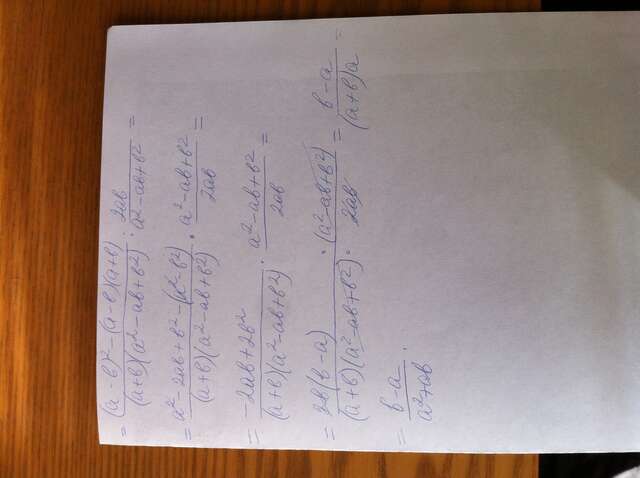 = (a-b)² - (a-b)(a+b) / (a+b)(a² - ab + b²) : 2ab / a² - ab + b² =
= a² - 2ab + b² - (a² - b²) / (a+b)(a² - ab + b²) · a² - ab + b² / 2ab =
= -2ab + 2b² / (a+b)(a² - ab + b²) · a² - ab + b² / 2ab =
= 2b(b-a) · (a² - ab + b²) / (a+b)(a² - ab + b²) · 2ab = b-a / (a+b)a =
= b-a / a² + ab .